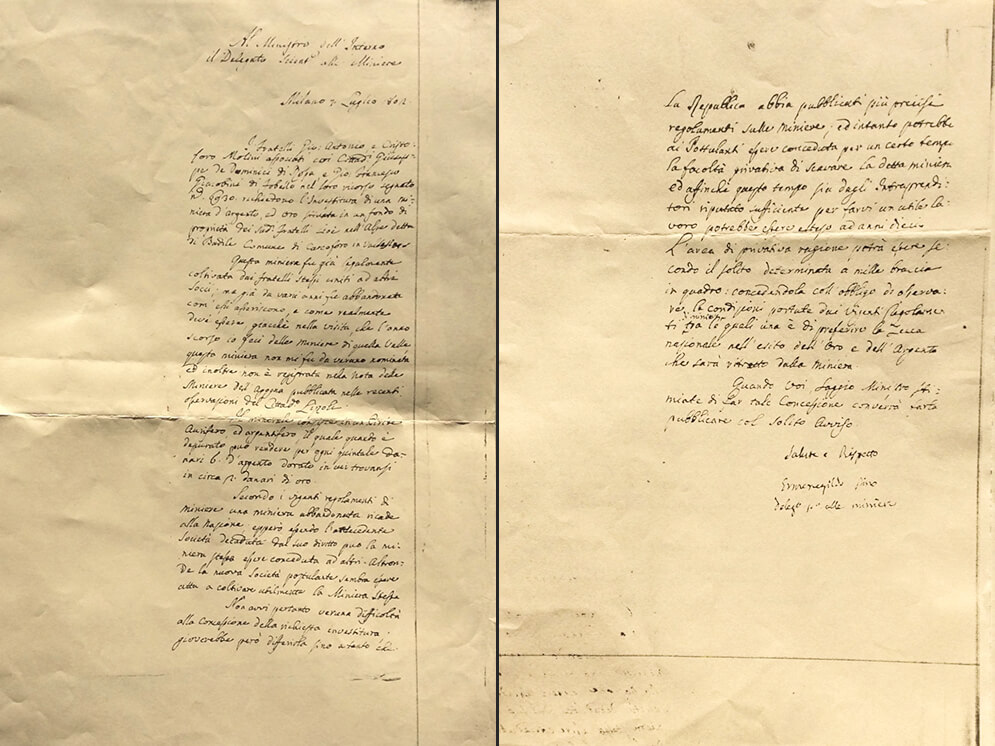 Al Ministro dell'Interno
il Delegato alle Miniere
Milano Luglio
I fratelli Gio: Antonio, e Cristo:
foro Molini associati coi Cittad.i Giusep:
pe de Dominici di Posa e Gio: Francesco
Giacobino di Fobello nel loro ricorso segnato
N. richiedono l'investitura di una mi:
niera d'argento, ed oro situata in un fondo di
proprietà dei sud.i fratelli cioè nell'Alpe detta
di Badile Comune di Carcoforo in
Questa miniera fu già
coltivata dai fratelli stessi uniti ad altri
socii; ma già da varii anni fu abbandonata
com' essi asseriscono, e come realmente
deve essere, giacchè nella visita, che l'anno
scorso io feci delle miniere di quella Valle
questa miniera non mi fu da veruno nominata
ed inoltre non è registrata nella Nota delle
Miniere del Agogna pubblicata nelle recenti
osservazioni del
Il minerale
Aurifero, ed argentifero, il quale
depurato può rendere per ogni quintale da:
nari 6. d'argento dorato in cui trovansi
in circa danari di oro
Secondo i vigenti regolamenti di
miniere una miniera abbandonata ricade
alla Nazione, epperò essendo l'antecedente
Società decaduta dal suo diritto può la mi:
niera stessa essere conceduta ad altri. Altron:
de la nuova Società postulante sembra essere
atta a coltivare utilmente la Miniera stessa
Non avvi pertanto veruna difficoltà
alla Concessione della richiesta investitura;
gioverebbe però differirla sino a tanto che
la Repubblica abbia pubblicati più precisi
regolamenti sulle miniere; ed intanto potrebbe
ai Postulanti essere conceduta per un certo tempo
la facoltà privativa di scavare la detta miniera
ed affinchè questo tempo sia dagli Intraprendi:
tori riputato sufficiente per farvi un utile la:
voro potrebbe essere esteso ad anni dieci
L'area di privativa ragione potrà essere se:
condo il solito determinata a mille braccia
in quadro: concedendola coll'obbligo di osserva:
re le condizioni portate dai vigenti Regolamen
ti fra le quali una è di preferire la Zecca
nazionale nell'esito dell'Oro e dell'Argento
che sarà ritratto dalla miniera
Quando Voi Saggio Ministro sti:
miate di far tale Concessione converrà farla
pubblicare col Solito Avviso.
Salute e Rispetto
Ermenegildo Pino
Deleg.to alle miniere